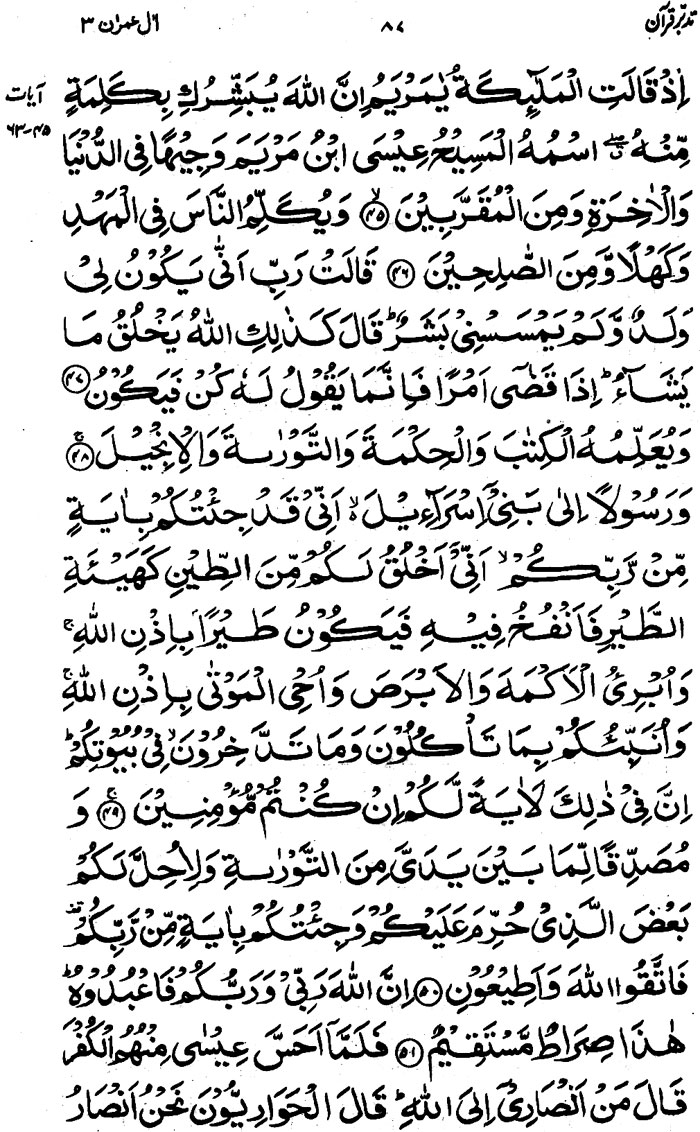 تدبّر قرآن ۸۷ اٰل عمرٰن ۳
اِذْ قَالَتِ الْمَلٰٓئِكَةُ يٰمَرْيَمُ اِنَّ اللّٰهَ يُبَشِّرُكِ بِكَلِمَةٍ
آیات
۴۵-۶۳
مِّنْهُ ۖ اسْمُهُ الْمَسِيْحُ عِيْسَى ابْنُ مَرْيَمَ وَجِيْهًا فِى الدُّنْيَا
وَالْاٰخِرَةِ وَمِنَ الْمُقَرَّبِيْنَ ۙ﴿۴۵﴾ وَيُكَلِّمُ النَّاسَ فِى الْمَهْدِ
وَكَهْلًا وَّمِنَ الصّٰلِحِيْنَ ﴿۴۶﴾ قَالَتْ رَبِّ اَنّٰى يَكُوْنُ لِىْ
وَلَدٌ وَّلَمْ يَمْسَسْنِىْ بَشَرٌ ؕ قَالَ كَذٰلِكِ اللّٰهُ يَخْلُقُ مَا
يَشَآءُ ؕ اِذَا قَضٰٓى اَمْرًا فَاِنَّمَا يَقُوْلُ لَهٗ كُنْ فَيَكُوْنُ ﴿۴۷﴾
وَيُعَلِّمُهُ الْكِتٰبَ وَالْحِكْمَةَ وَالتَّوْرٰىةَ وَالْاِنْجِيْلَ ۚ﴿۴۸﴾
وَرَسُوْلًا اِلٰى بَنِىْٓ اِسْرَآءِيْلَ ۙ اَنِّىْ قَدْ جِئْتُكُمْ بِاٰيَةٍ
مِّنْ رَّبِّكُمْ ۙ اَنِّىْٓ اَخْلُقُ لَكُمْ مِّنَ الطِّيْنِ كَهَيْئَةِ
الطَّيْرِ فَاَنْفُخُ فِيْهِ فَيَكُوْنُ طَيْرًۢا بِاِذْنِ اللّٰهِ ۚ
وَاُبْرِئُ الْاَكْمَهَ وَالْاَبْرَصَ وَاُحْىِ الْمَوْتٰى بِاِذْنِ اللّٰهِ ۚ
وَاُنَبِّئُكُمْ بِمَا تَاْكُلُوْنَ وَمَا تَدَّخِرُوْنَ ۙ فِىْ بُيُوْتِكُمْ ؕ
اِنَّ فِىْ ذٰلِكَ لَاٰيَةً لَّكُمْ اِنْ كُنْتُمْ مُّؤْمِنِيْنَ ۚ﴿۴۹﴾ وَ
مُصَدِّقًا لِّمَا بَيْنَ يَدَىَّ مِنَ التَّوْرٰىةِ وَلِاُحِلَّ لَكُمْ
بَعْضَ الَّذِىْ حُرِّمَ عَلَيْكُمْ وَجِئْتُكُمْ بِاٰيَةٍ مِّنْ رَّبِّكُمْ ۟
فَاتَّقُوا اللّٰهَ وَاَطِيْعُوْنِ ﴿۵۰﴾ اِنَّ اللّٰهَ رَبِّىْ وَرَبُّكُمْ فَاعْبُدُوْهُ ؕ
هٰذَا صِرَاطٌ مُّسْتَقِيْمٌ ﴿۵۱﴾ فَلَمَّآ اَحَسَّ عِيْسٰى مِنْهُمُ الْكُفْرَ
قَالَ مَنْ اَنْصَارِىْٓ اِلَى اللّٰهِ ؕ قَالَ الْحَوَارِيُّوْنَ نَحْنُ اَنْصَارُ